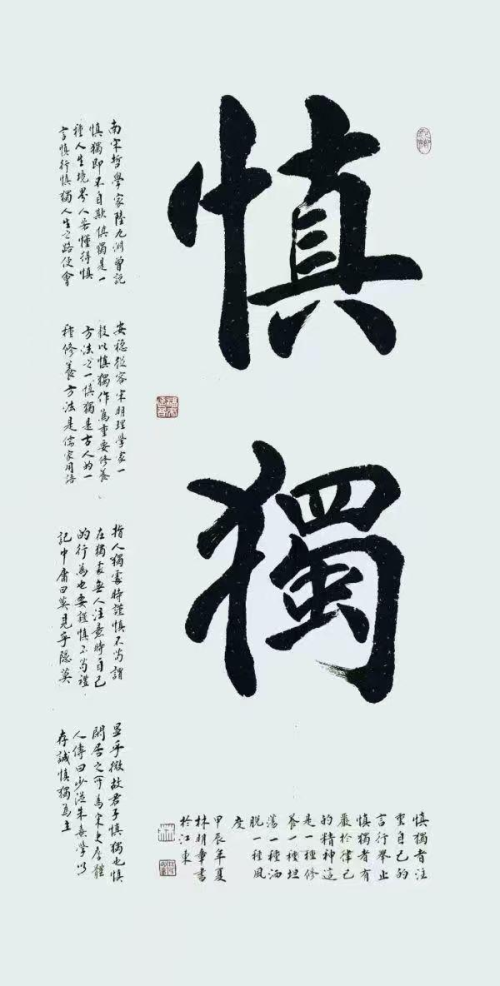 慎
獨
慎獨者注
重自己的
言行舉止
慎獨者有
嚴於律己
的精神這
是一種修
養一種坦
蕩一種洒
脱一種風
度
甲辰年夏
林章書
於江東
南宋哲學家陸九淵曾記
慎獨即不自欺慎獨是一
種人生境界人若懂得慎
言慎行慎獨人生之路便會
安穩從容宋明理學家一
般以慎獨作為重要修養
方法之一慎獨是古人的一
種修養方法是儒家用語
指人獨處時謹慎不苟謂
在獨處無人注意時自己
的行為也要謹慎不苟禮
記中庸曰莫見乎隱莫
顯乎微故君子慎獨也慎
閑居之所為宋史詹體
人傳曰少從朱熹學以
存誠慎獨為主